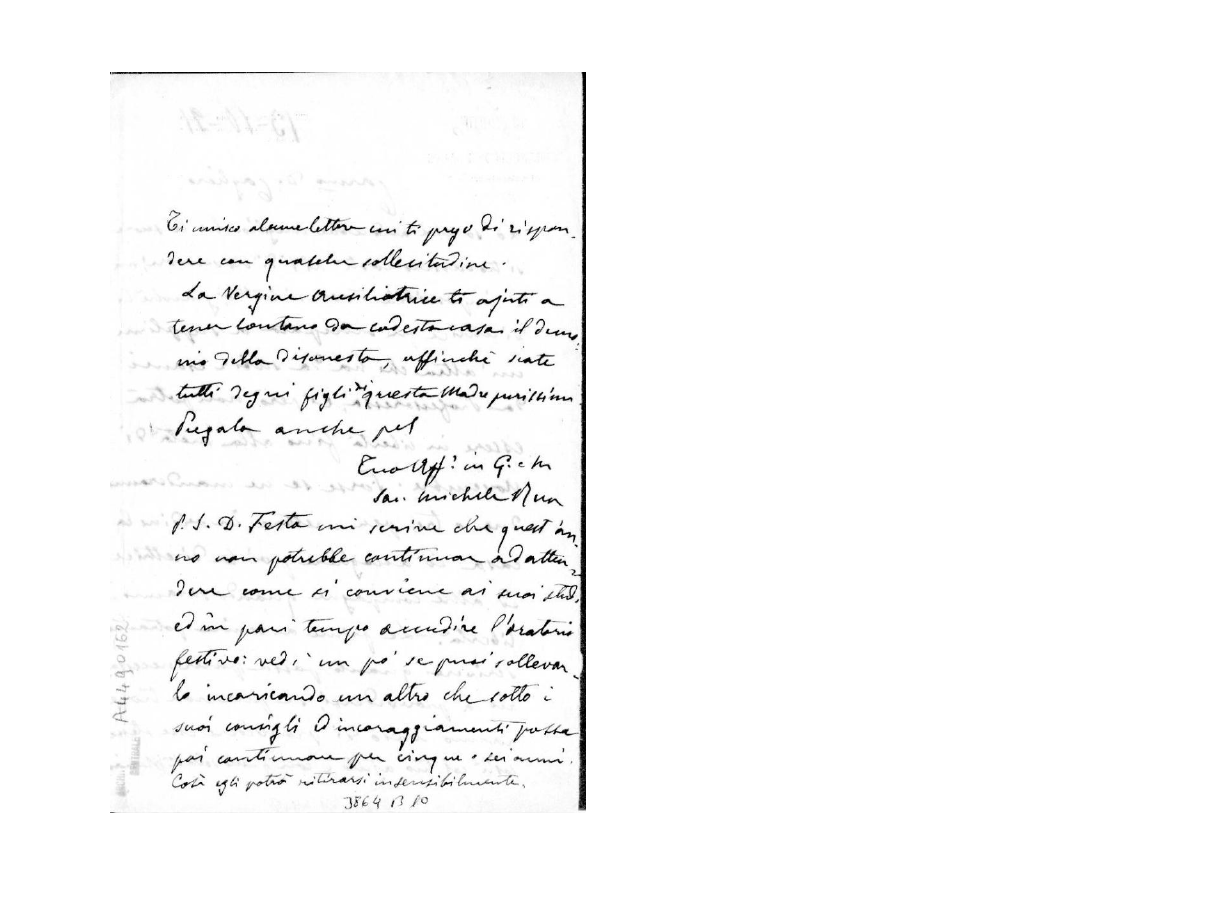 Ti unisco alcune lettere cui ti prego di rispon-
dere con qualche sollecitudine.
La Vergine Ausiliatrice ti ajuti a
tener lontano da codesta casa il demo-
nio della disonestà, affinchè siate
tutti degni figli di questa Madre purissima
Pregala anche pel
Tuo Aff.° in G. e M
Sac. Michele Rua
P. S. D. Festa mi scrive che quest'an-
no non potrebbe continuar ad atten-
dere come si conviene ai suoi studi,
ed in pari tempo accudire l'oratorio
festivo: vedi un po' se puoi sollevar-
lo incaricando un altro che sotto i
suoi consigli ed incoraggiamenti possa
poi continuare per cinque o sei anni.
Così egli potrà ritirarsi insensibilmente.
3864 B 10
A4490162